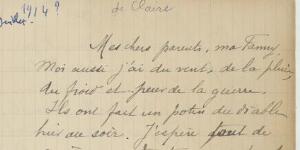 1914?
de Claire
Juillet
Mes chers parents, ma Fanny,
Moi aussi j'ai du vent, de la pluie,
du froid et peur de la guerre.
Ils ont fait un potin du diable
hier au soir. J'espère tout de